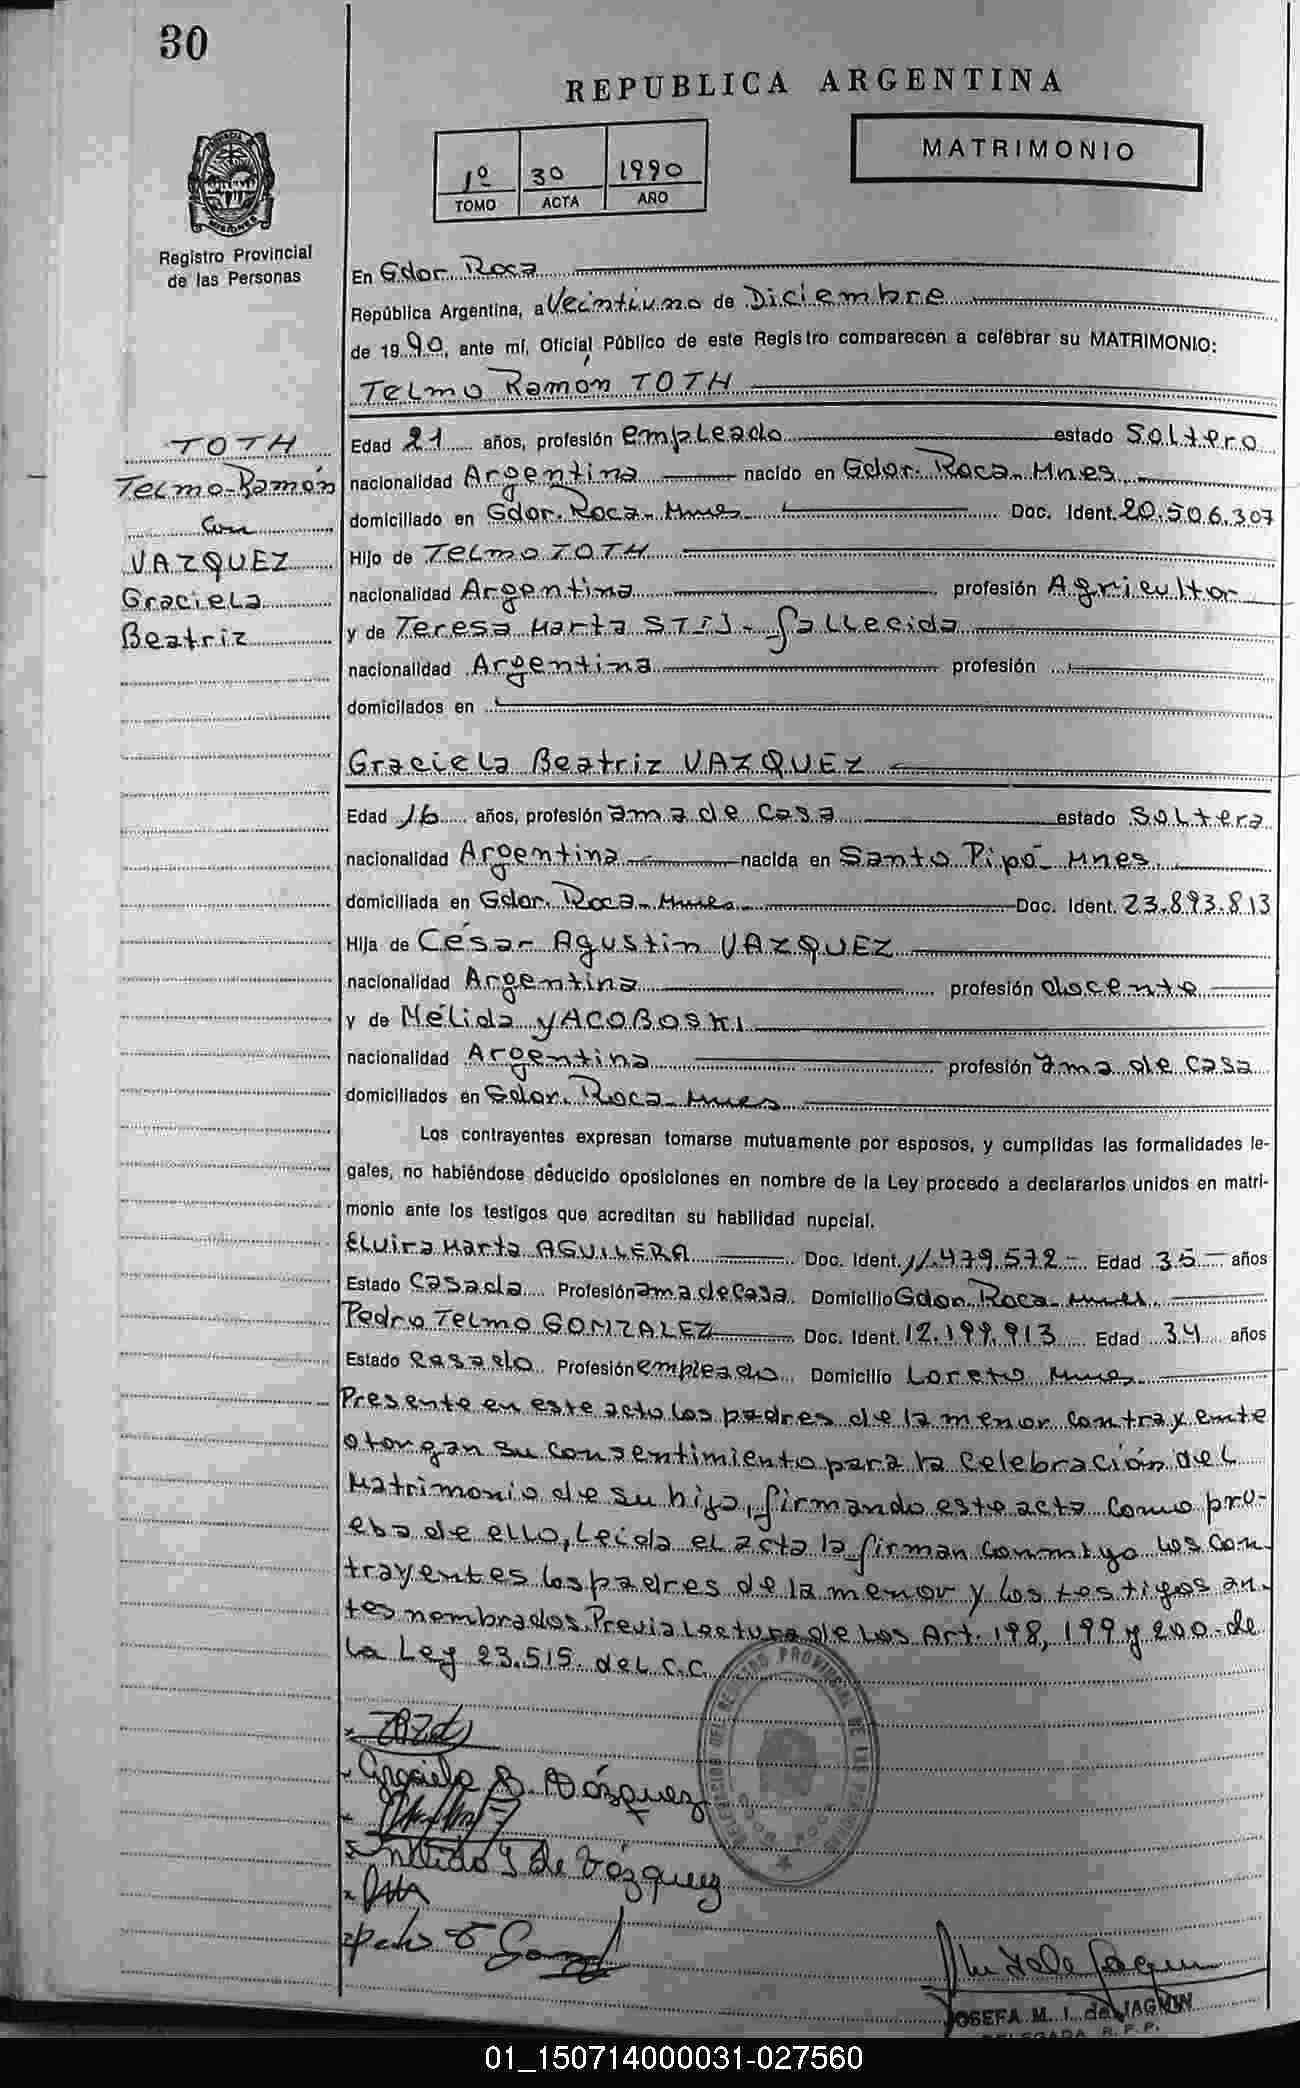 30
REPUBLICA ARGENTINA
MATRIMONIO
1º 30 1990
TOMO ACTA AÑO
PROVINCIA
MISIONES
Registro Provincial
de las Personas
En Gdor Roca
República Argentina, a Veintiuno de Diciembre
de 1990, ante mí, Oficial Público de este Registro comparecen a celebrar su MATRIMONIO:
Telmo Ramón TOTH
TOTH
Telmo Ramón
con
VAZQUEZ
Graciela
Beatriz
Edad 21 años, profesión empleado estado Soltero
nacionalidad Argentina nacido en Gdor. Roca - Mnes
domiciliado en Gdor. Roca - Mnes Doc. Ident. 20.506.307
Hijo de Telmo TOTH
nacionalidad Argentina profesión Agricultor
y de Teresa Marta - fallecida
nacionalidad Argentina profesión
domicilados en
Graciela Beatriz VAZQUEZ
Edad 16 años, profesión ama de casa estado Soltera
nacionalidad Argentina nacida en Santo Pipó - Mnes
domiciliada en Gdor. Roca - Mnes Doc. Ident. 23.893.813
Hija de César Agustin VAZQUEZ
nacionalidad Argentina profesión docente
y de Mélida YACOBOSKI
nacionalidad Argentina profesión ama de casa
domiciliados en Gdor. Roca - Mnes
Los contrayentes expresan tomarse mutuamente por esposos, y cumplidas las formalidades le-
gales, no habiéndose deducido oposiciones en nombre de la Ley procedo a declararlos unidos en matri-
monio ante los testigos que acreditan su habilidad nupcial.
Elvira Marta AGUILERA Doc. Ident. 11.479.572 - Edad 35 años
Estado Casada Profesión ama de casa Domicilio Gdor. Roca - Mnes
Pedro Telmo GONZALEZ Doc. Ident. 12.199.913 Edad 34 años
Estado casado Profesión empleado Domicilio Loreto Mnes
Presente en este acto los padres de la menor contrayente
otorgan su consentimiento para la celebración del
Matrimonio de su hija, firmando este acta como pru-
eba de ello, Leída el acta la firman conmigo los con-
trayentes los padres de la menor y los testigos an-
tes nombrados. Previa Lectura de los Art. 198, 199 y 200 - de
la Ley 23.515 del C.C.
DELEGACION DEL REGISTRO PROVINCIAL DE LAS PERSONAS
GDOR. ROCA
Graciela B. Vázquez
Mélida Y de Vázquez
Pedro T Gonzalez
JOSEFA M. I. de JAGMIN
DELEGADA R. P. P.
01_150714000031-027560